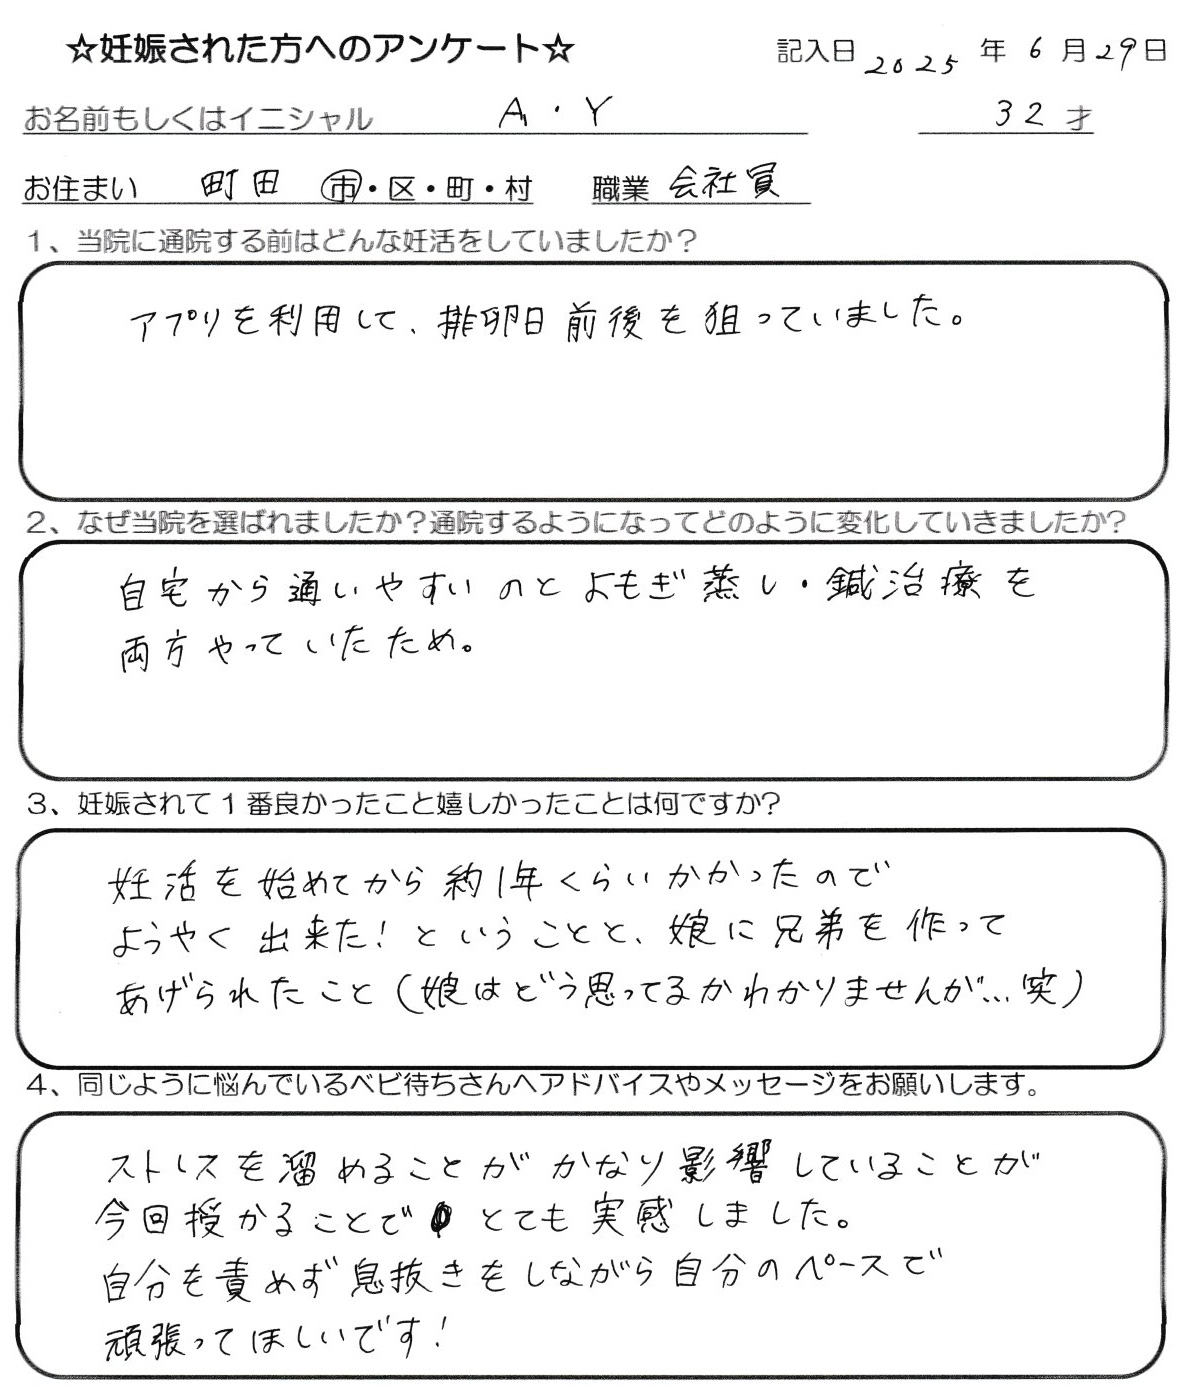 ☆妊娠された方へのアンケート☆ 記入日 2025 年 6 月 29 日
お名前もしくはイニシャル A・Y 32 才
お住まい 町田 市・区・町・村 職業 会社員
1、当院に通院する前はどんな妊活をしていましたか？
アプリを利用して、排卵日前後を狙っていました。
2、なぜ当院を選ばれましたか？通院するようになってどのように変化していきましたか?
自宅から通いやすいのとよもぎ蒸し・鍼治療を
両方やっていたため。
3、妊娠されて1番良かったこと嬉しかったことは何ですか?
妊活を始めてから約1年くらいかかったので
ようやく出来た！ということと、娘に兄弟を作って
あげられたこと（娘はどう思ってるかわかりませんが…笑）
4、同じように悩んでいるベビ待ちさんへアドバイスやメッセージをお願いします。
ストレスを溜めることがかなり影響していることが
今回授かることでとても実感しました。
自分を責めず息抜きをしながら自分のペースで
頑張ってほしいです！